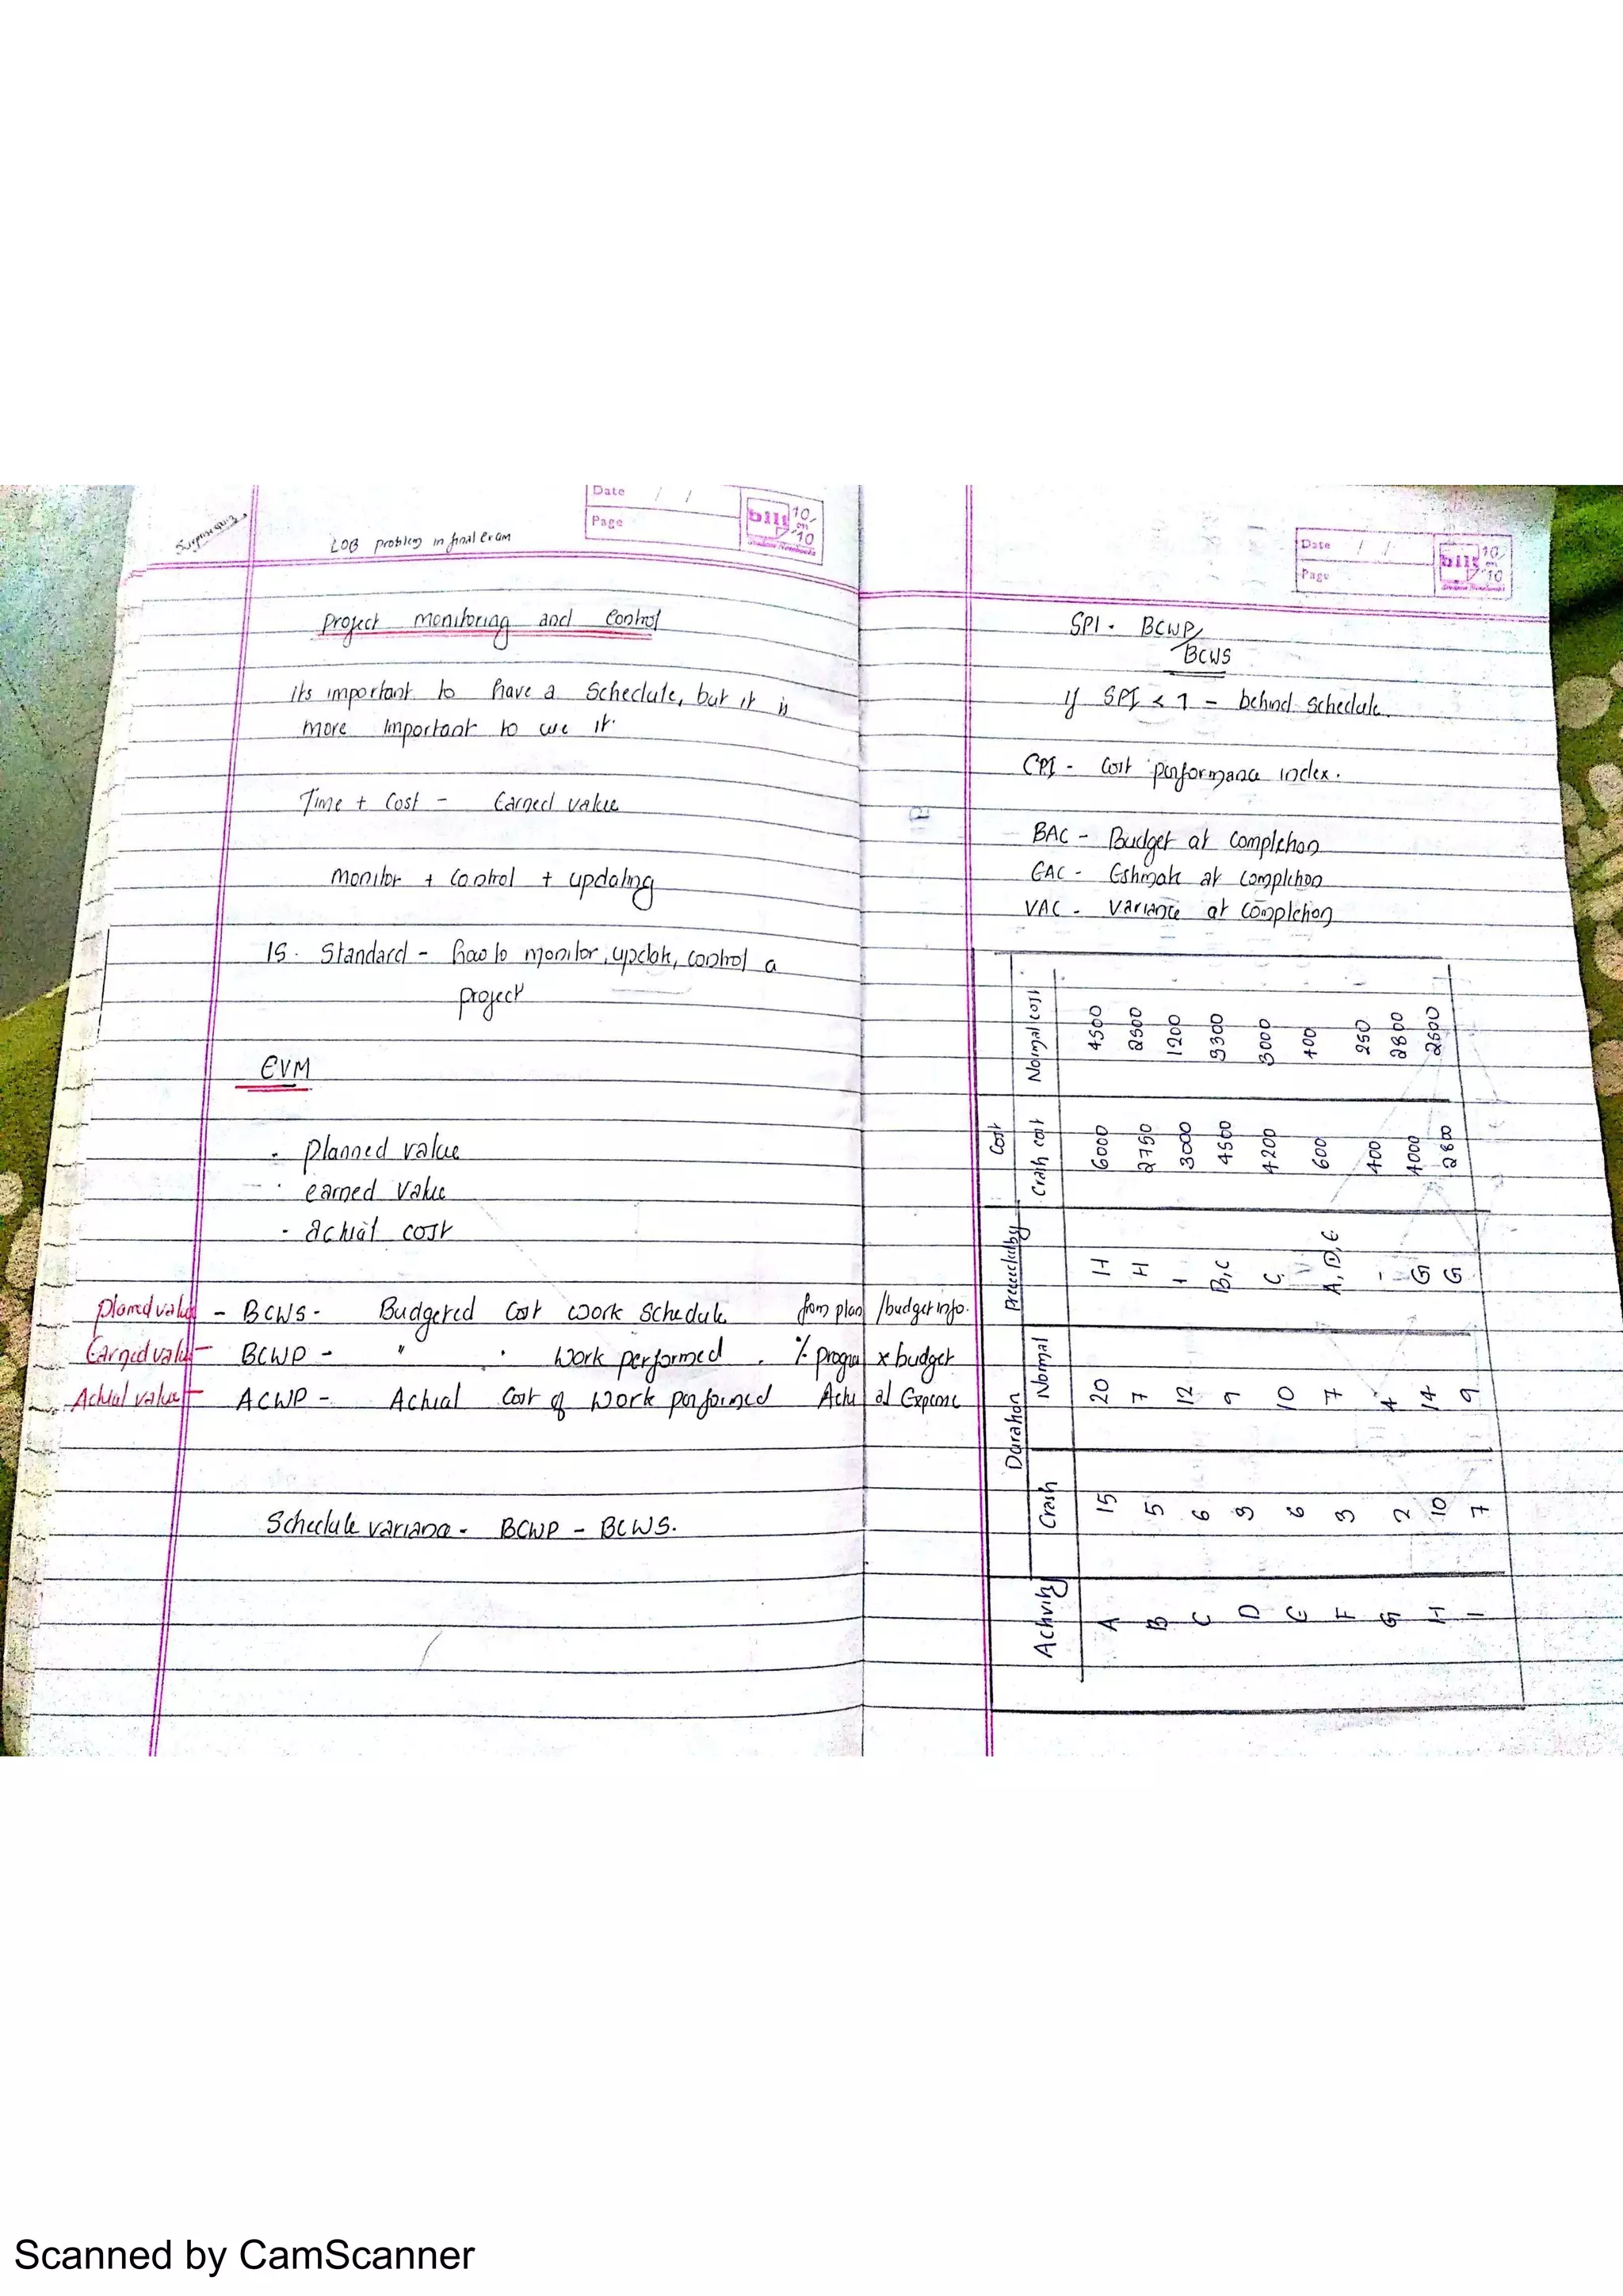 Surprise quiz
LOB problem in final exam
Date / /
Page
bilt 10 on 10
Project monitoring and Control
its important to have a Schedule, but it is
more important to use it.
Time + Cost - Earned value
monitor + Control + updating
IS. Standard - how to monitor, update, control a
project
EVM
. planned value
. earned value
. actual cost
Planned value - BCWS - Budgetred Cost work Schedule from plan /budget info.
Earned value - BCWP - " . Work performed . % progress x budget
Actual value - ACWP - Actual Cost of Work performed Actual Expense
Schedule variance - BCWP - BCWS.
Date / /
Page
bilt 10 on 10
SPI - BCWP/
BCWS
if SPI < 1 - behind schedule.
CPI - Cost performance index.
BAC - Budget at Completion
EAC - Estimate at Completion
VAC - Variance at Completion
Activity Duration Preceded by Cost
Crash Normal Crash cost Normal cost
A 15 20 H 6000 4500
B 5 7 H 2750 2500
C 6 12 I 3000 1200
D 3 9 B,C 4500 3300
E 6 10 C 4200 3000
F 3 7 A, D, E 600 400
G 2 4 - 400 250
H 10 14 G 4000 2800
I 7 9 G 2800 2500
Scanned by CamScanner